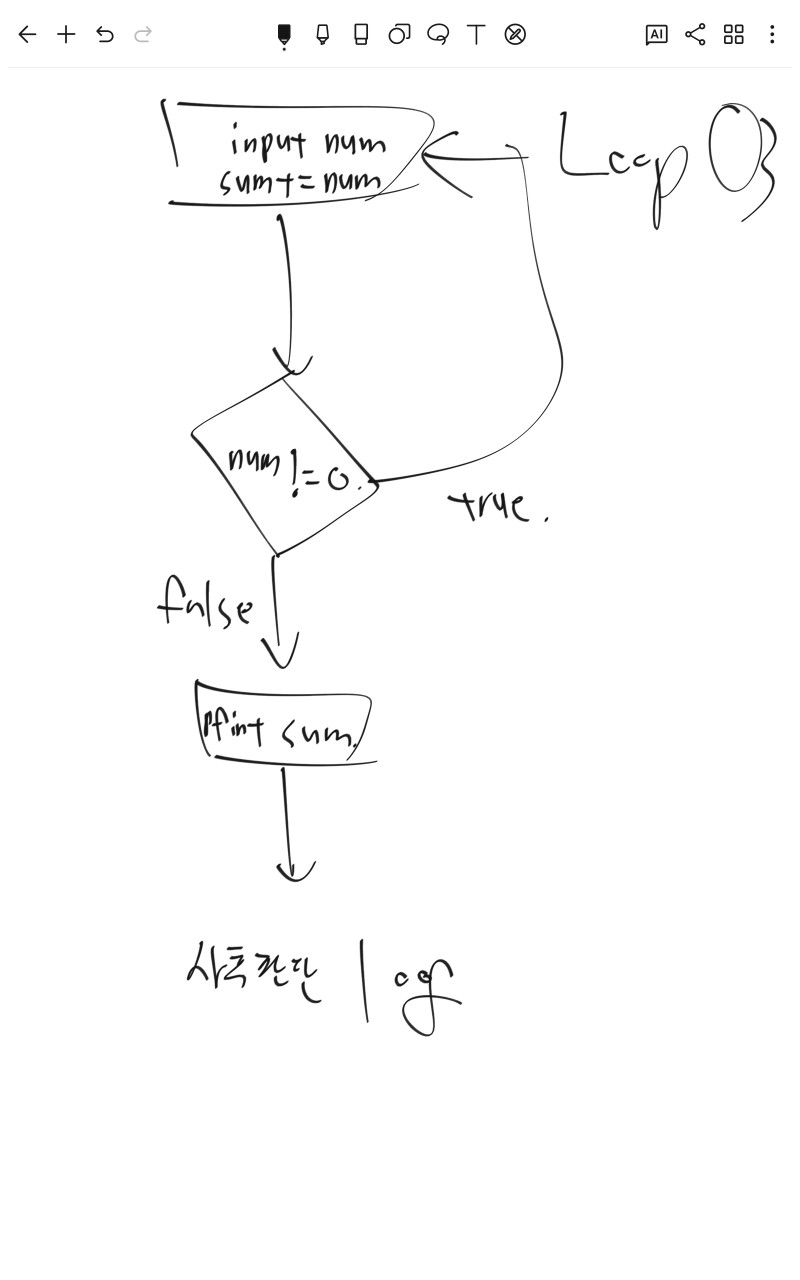 AI
input num
sum+=num
Loop 03
num!=0.
true.
false
Print sum.
loop